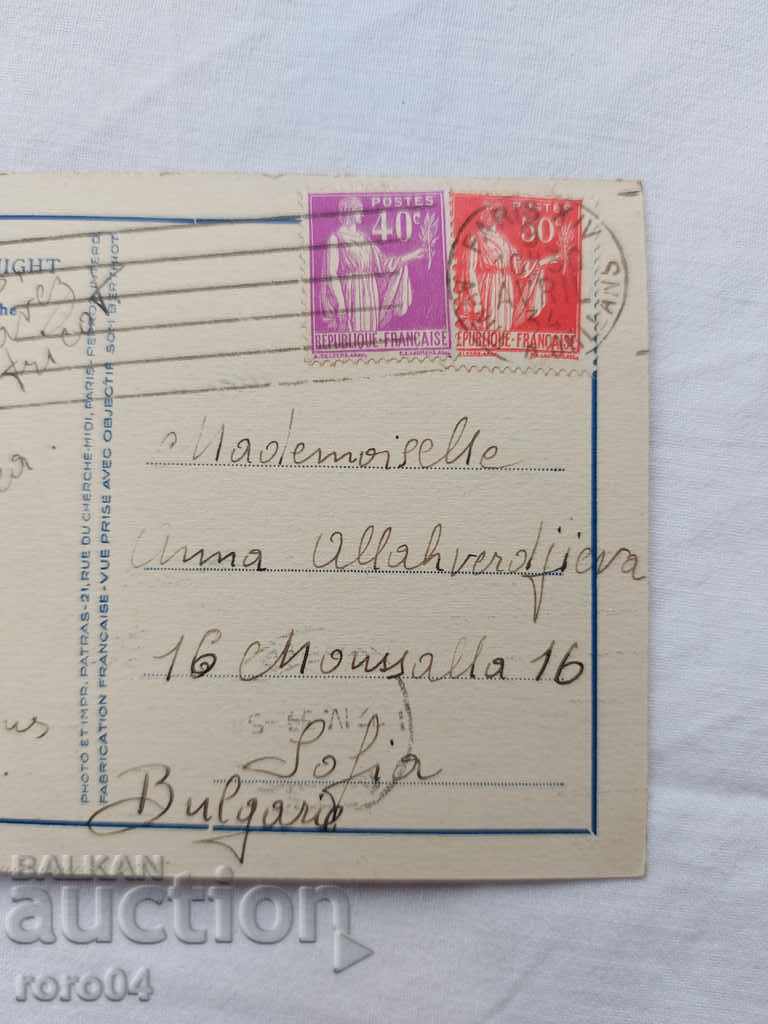 POSTES
40c
RÉPUBLIQUE-FRANÇAISE
POSTES
80c
RÉPUBLIQUE-FRANÇAISE
PARIS XIV
AVRIL
IGHT
he
Mademoiselle
Anna Allahverdjieva
16 Moussalla 16
Sofia
Bulgarie
PHOTO ET IMPR. PATRAS-21, RUE DU CHERCHE-MIDI, PARIS-
FABRICATION FRANÇAISE-VUE PRISE AVEC OBJECTIF SOM BERTHIOT
BALKAN
auction
roro04